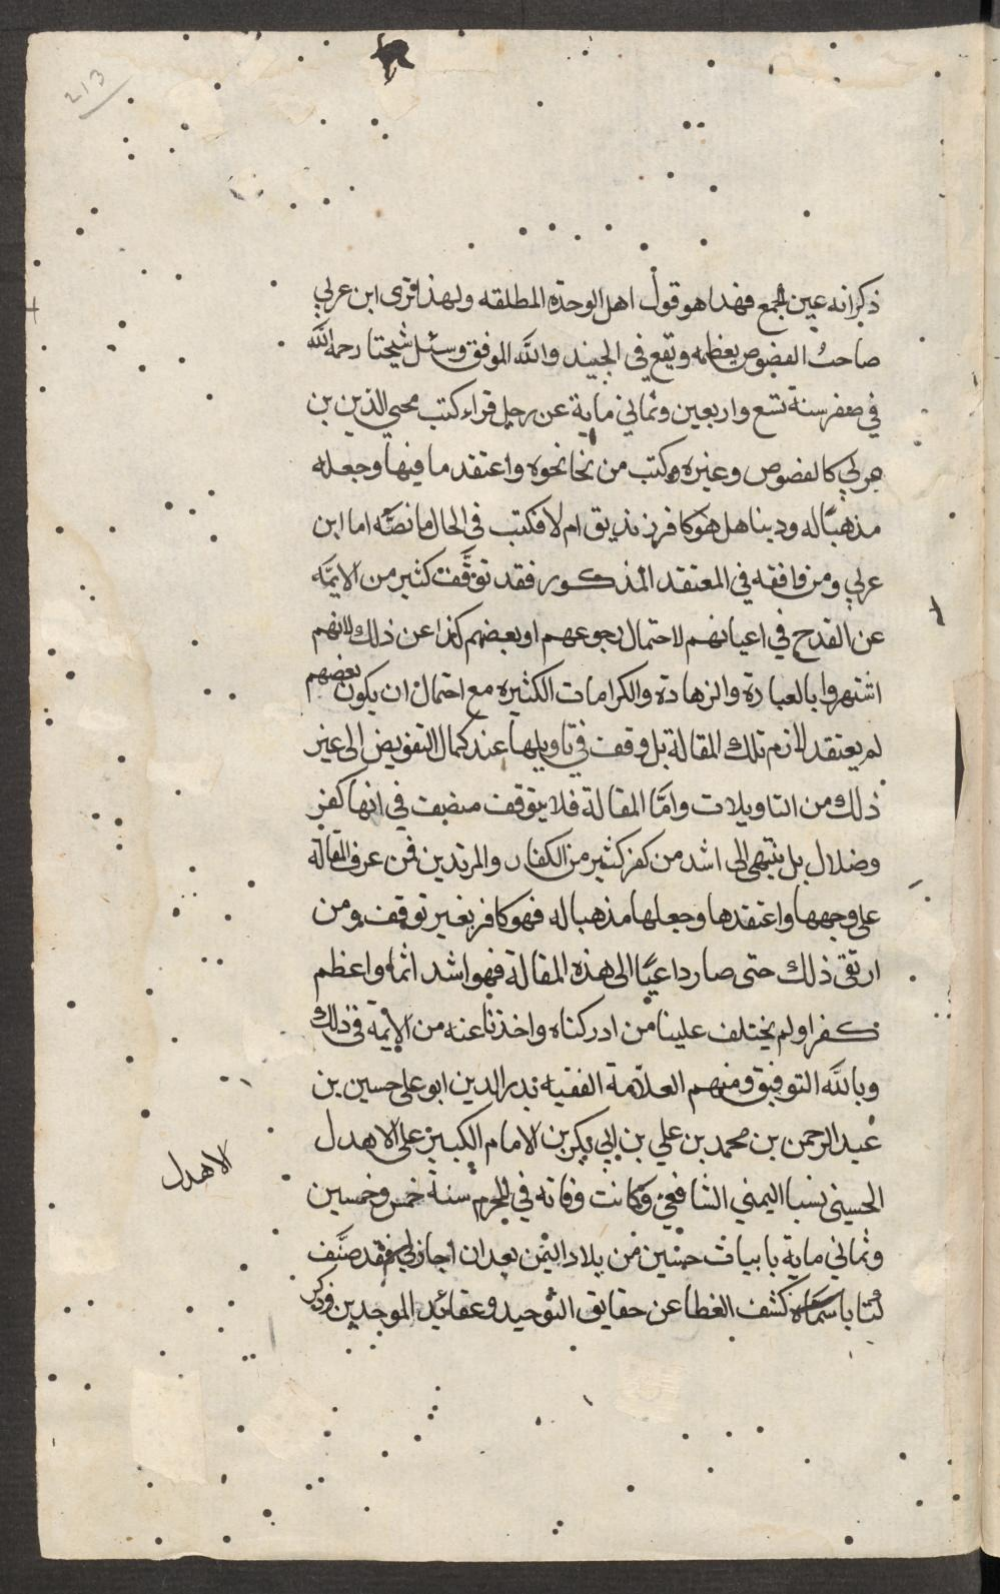 213
ذكر انه عين الجمع فهذا هو قول اهل الوحدة المطلقه ولهذا ترى ابن عربي
صاحب الفصوص يعظمه ويقع في الجنيد والله الموفق وسئل شيخنا رحمه الله
في صفر سنة تسع واربعين وثماني ماية عن رجل قراء كتب محيي الدين بن
عربي كالفصوص وغيره وكتب من نحا نحوه واعتقد ما فيها وجعله
مذهبًا له ودينا هل هو كافر زنديق ام لا فكتب في الحال ما نصّه اما ابن
عربي ومن وافقه في المعتقد المذكور فقد توقّفت كثير من الايمّه
عن القدح في اعيانهم لاحتمال رجوعهم او بعضهم كذا عن ذلك لانهم
اشتهروا بالعبادة والزهادة والكرامات الكثيره مع احتمال ان يكون بعضهم
لم يعتقد لازم تلك المقالة بل وقف في تاويلها عند كمال التفويض الى غير
ذلك من التاويلات وامّا المقالة فلا يتوقف منصف في انها كفر
وضلال بل ينتهي الى اشد من كفر كثير من الكفار والمرتدين فمن عرف المقالة
على وجهها واعتقدها وجعلها مذهبا له فهو كافر بغير توقف ومن
ارتقى ذلك حتى صار داعيًا الى هذه المقالة فهو اشد اثما واعظم
كفرا ولم يختلف علينا من ادركناه واخذنا عنه من الايمة في ذلك
وبالله التوفيق ومنهم العلّامة الفقيه بدر الدين ابو علي حسين بن
عبد الرحمن بن محمد بن علي بن ابي بكر بن الامام الكبير علي الاهدل
الاهدل
الحسيني نسبا اليمني الشافعي وكانت وفاته في المحرم سنة خمس وخمسين
وثماني ماية بابيات حسين من بلاد اليمن بعد ان اجاز لي فقد صنّف
كتابا سمّاه كشف الغطا عن حقايق التوحيد وعقائد الموحدين وذكر